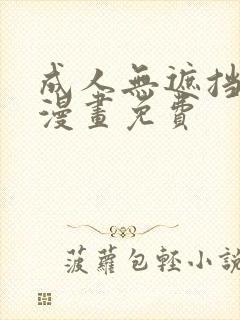 成人無遮挡
漫畫免費
菠蘿包輕小說